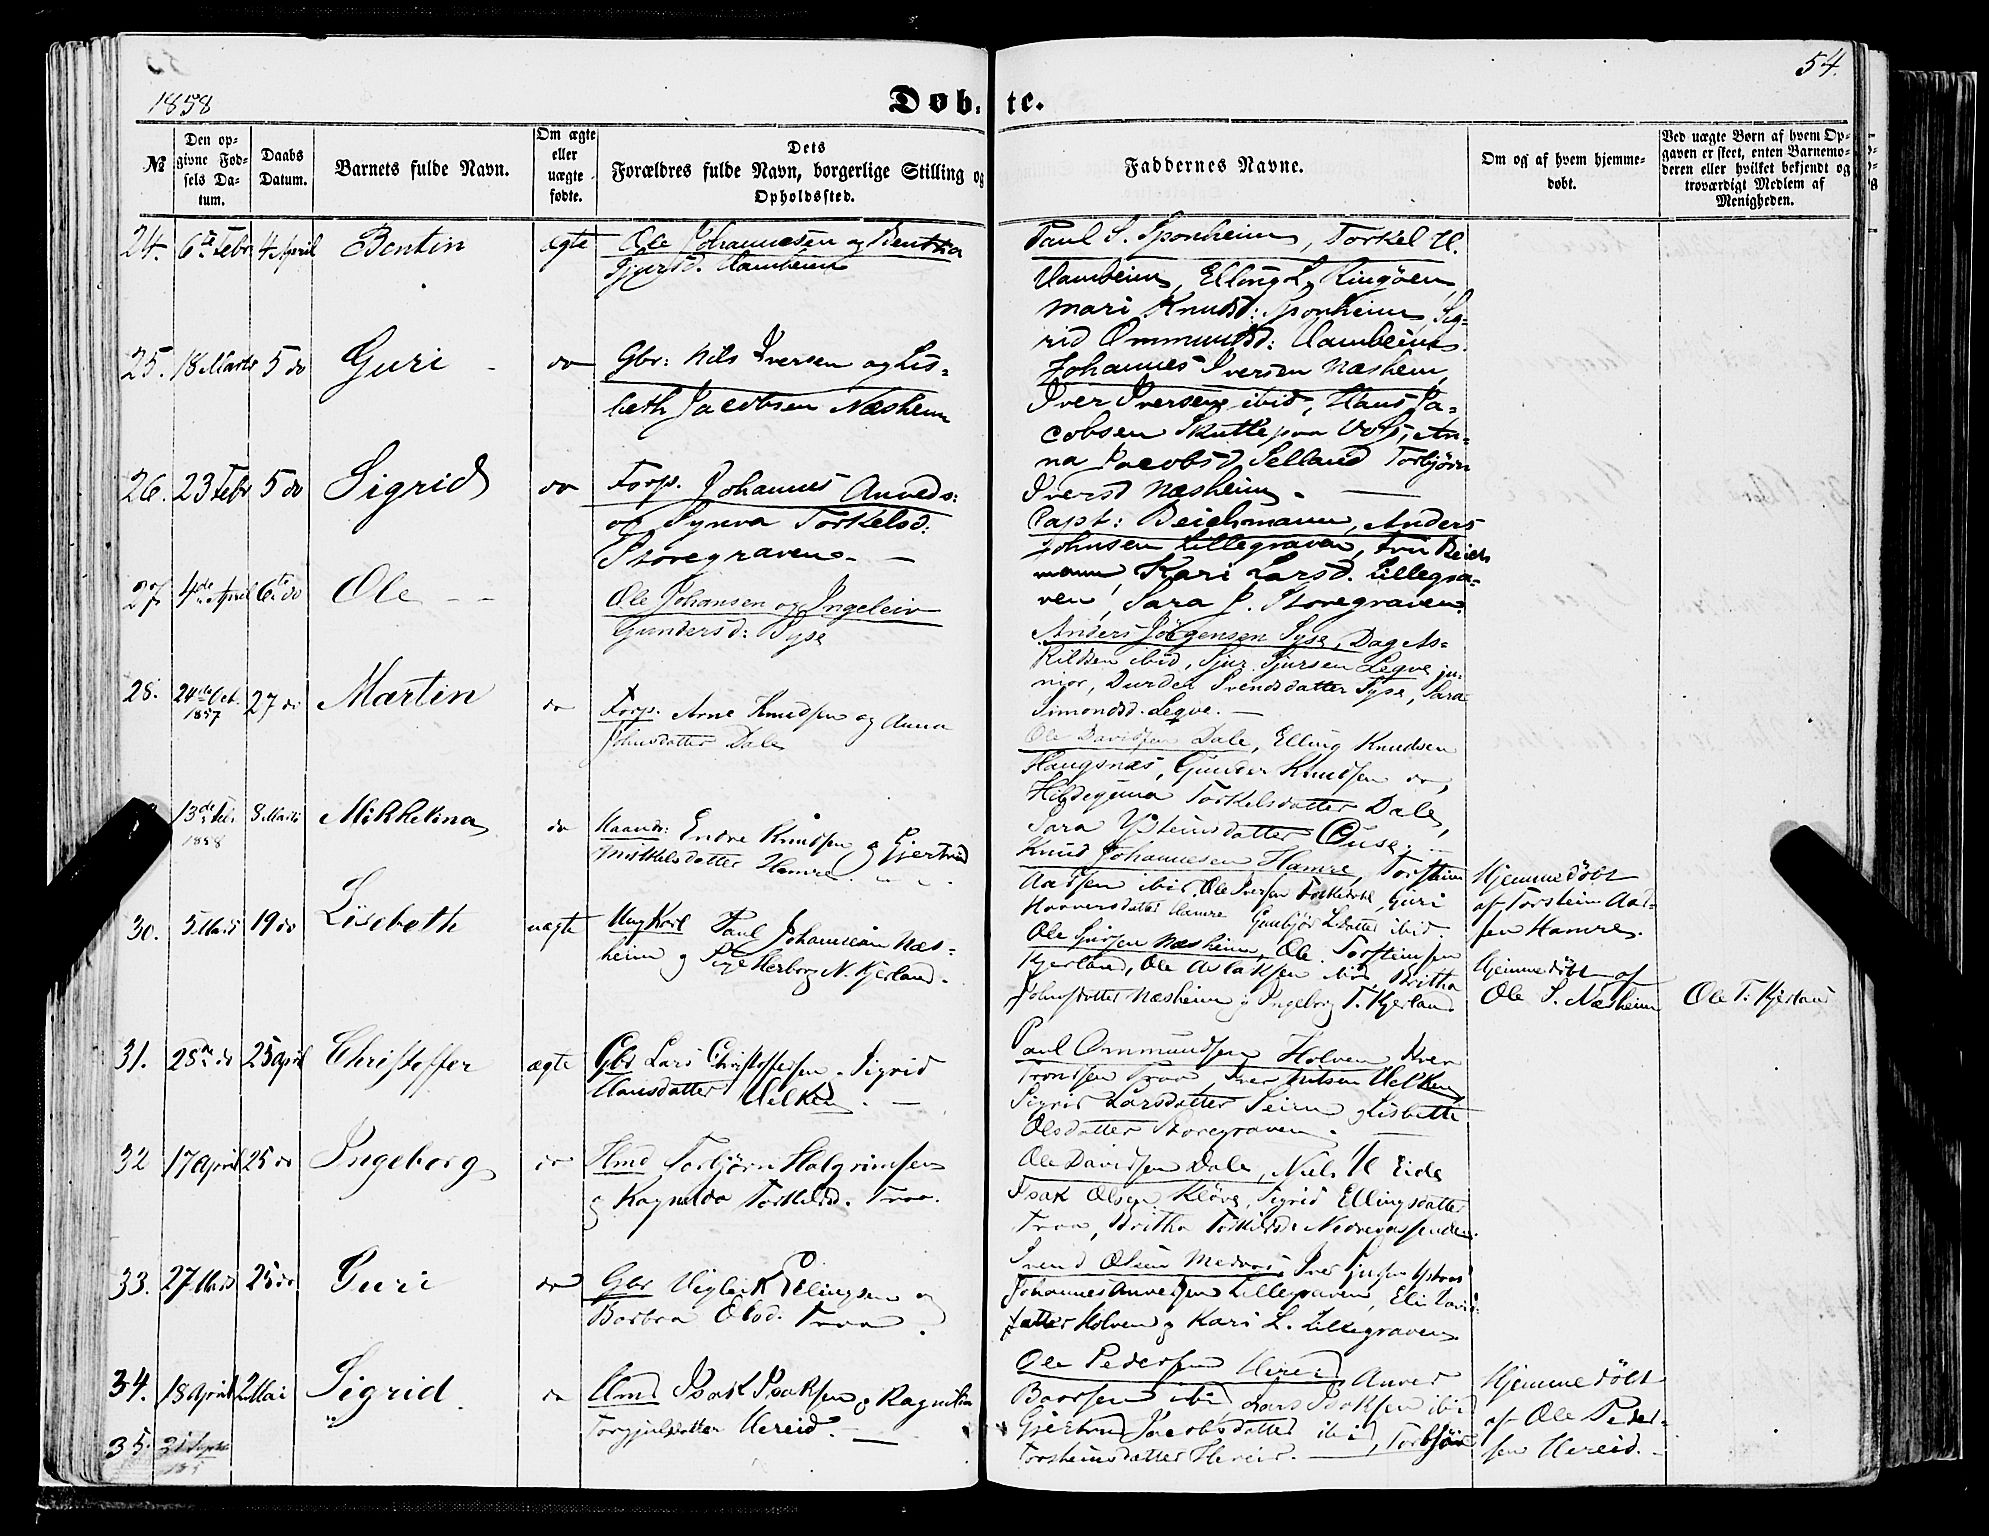 54.
1858
Døb-te.
№
Den opgivne Fødsels Datum.
Daabs Datum.
Barnets fulde Navn.
Om ægte eller uægte fødte.
Dets Forældres fulde Navn, borgerlige Stilling og Opholdssted.
Faddernes Navne.
Om og af hvem hjemmedøbt.
Ved uægte Børn af hvem Opgaven er skeet, enten Barnemoderen eller hvilket bekjendt og troværdigt Medlem af Menigheden.
24. 6te Febr 4 April Bentin ægte Ole Johannesen og Bentha
Sjursd. Vambeim
Paul S. Sponheim, Torkel H.
Vambeim, Elling L. Ringøen,
Mari Knudsd: Sponheim, Sig-
rid Ommundsd: Vambeim.
25. 18 Marts 5 do Guri do Gbr: Nils Iversen og Lis-
beth Jacobsen Næsheim
Johannes Iversen Næsheim,
Iver Iversen ibid, Hans Ja-
cobsen Skutle paa Vos, An-
na Jacobsd Selland Torbjørn
Iversd Næsheim.
26. 23 Febr 5 do Sigrid do Torp. Johannes Anveds:
og Synva Torkelsd:
Storegraven.
Capt: Beichmann, Anders
Johnsen Lillegraven, Fru Beich
mann, Kari Larsd. Lillegra-
ven, Sara J. Storegraven.
27. 4de April 6te do Ole Ole Johansen og Ingeleiv
Gundersd: Syse
Anders Jørgensen Syse, Dag As-
kildsen ibid, Sjur Sjursen Legve ju-
nior, Durdei Svendsdatter Syse, Sara
Simonsd. Legve.
28. 24de Oct. 1857 27 do Martin do Torp. Arne Knudsen og Anna
Johnsdatter Dale
Ole Davidsen Dale, Elling Knudsen
Haugsnæs, Gunder Knudsen do,
Hildegunna Torkelsdatter Dale,
Sara Ysteinsdatter Øuse.
13de Feb. 1858 8 Marts Mikkelina do Haandv: Endre Knudsen og Gjertrud
Mikkelsdatter Hamre
Knud Johannesen Hamre, Torstein
Aadsen ibid, Ole Iversen, Guri
Haaversdatter Hamre ibid.
Hjemmedøbt
af Torstein Aad-
sen Hamre.
30. 5 Marts 19 do Lisebeth uægte Ungkarl Paul Johannesen Næs-
heim og Pige Herborg N. Kjerland.
Ole Sjursen Næsheim, Ole Torsteinsen
Kjerland, Ole Aslaksen ibid, Britha
Johnsdatter Næsheim og Ingeborg T. Kjerland
Hjemmedøbt af
Ole S. Næsheim
Ole T. Kjerland
31. 28de do 25 April Christoffer ægte Gbr Lars Christoffersen. Sigrid
Hansdatter Velken.
Paul Ommundsen Holven Iver
Trondsen Traa, Iver Velken
Sigrid Larsdatter Seim og Lisbeth
Olsdatter Storegraven.
32 17 April 25 do Ingeborg do Hmd Torbjørn Halgrimsen
og Ragnilda Torkildsd. Traa.
Ole Davidsen Dale, Niels H Eide
Isak Olsen Kløve, Sigrid Ellingsdatter
Traa, Britha Torkildsd: Nedrevasenden.
33. 27 Marts 25 do Guri do Gbr Vigleik Ellingsen og
Barbra Olsd. Traa.
Svend Olsen Medaas, Iver
Johannes Anvedsen Lillegraven, Elin David-
datter Holven og Kari L. Lillegraven
34. 18 April 2 Mai Sigrid do Hmd Isak Isaksen og Ragnilda
Torgjulsdatter Hereid.
Ole Pedersen Hereid Anved
Baarsen ibid Lars Isaksen ibid
Gjertrud Jacobsdatter ibid, Torbjør
Torsteinsdatter Hereid.
Hjemmedøbt
af Ole Peder-
sen Hereid.
35.